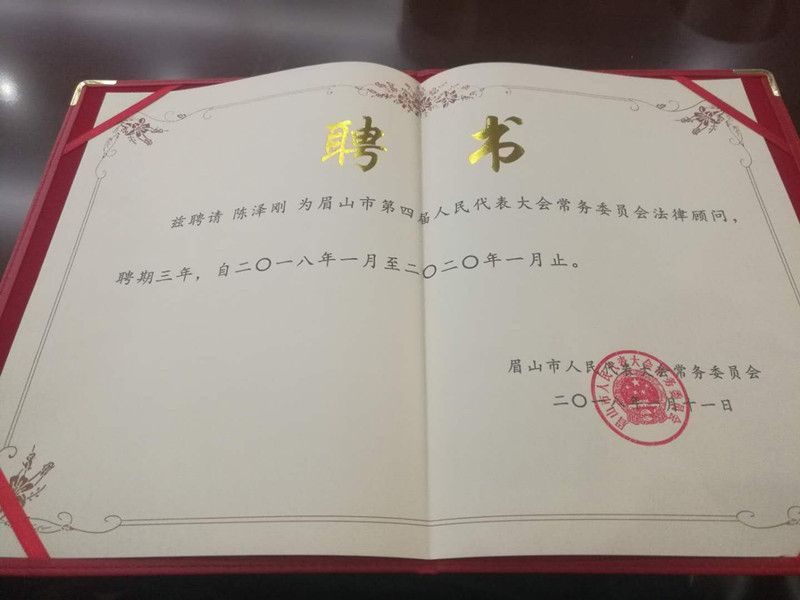 聘书
兹聘请 陈泽刚 为眉山市第四届人民代表大会常务委员会法律顾问，
聘期三年，自二〇一八年一月至二〇二〇年一月止。
眉山市人民代表大会常务委员会
二〇一八年一月十一日
眉山市人民代表大会常务委员会